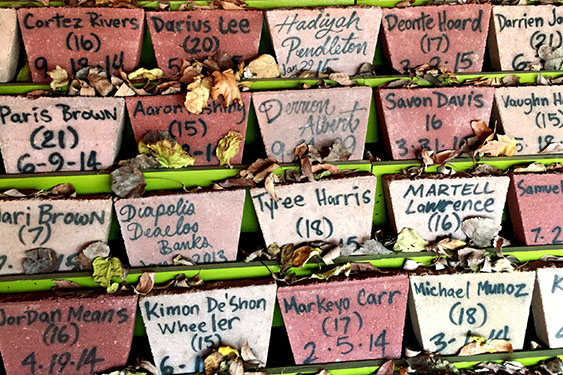 Cortez Rivers
(16)
9-18-14
Darius Lee
(20)
Hadiyah
Pendleton
Jan 29 15
Deonte Hoard
(17)
15
Darrien
(21)
Paris Brown
(21)
6-9-14
Aaron
(15)
Derrion
Albert
9
Savon Davis
16
3-31-15
Vaughn
(15)
5-
Brown
(7)
Diapolis
Deaclos
Banks
2013
Tyree Harris
(18)
15
MARTELL
Lawrence
(16)
Samuel
7-2
JorDan Means
(16)
4-19-14
Kimon De'Shon
Wheeler
(15)
6-
Markeyo Carr
(17)
2-5-14
Michael Munoz
(18)
14
K